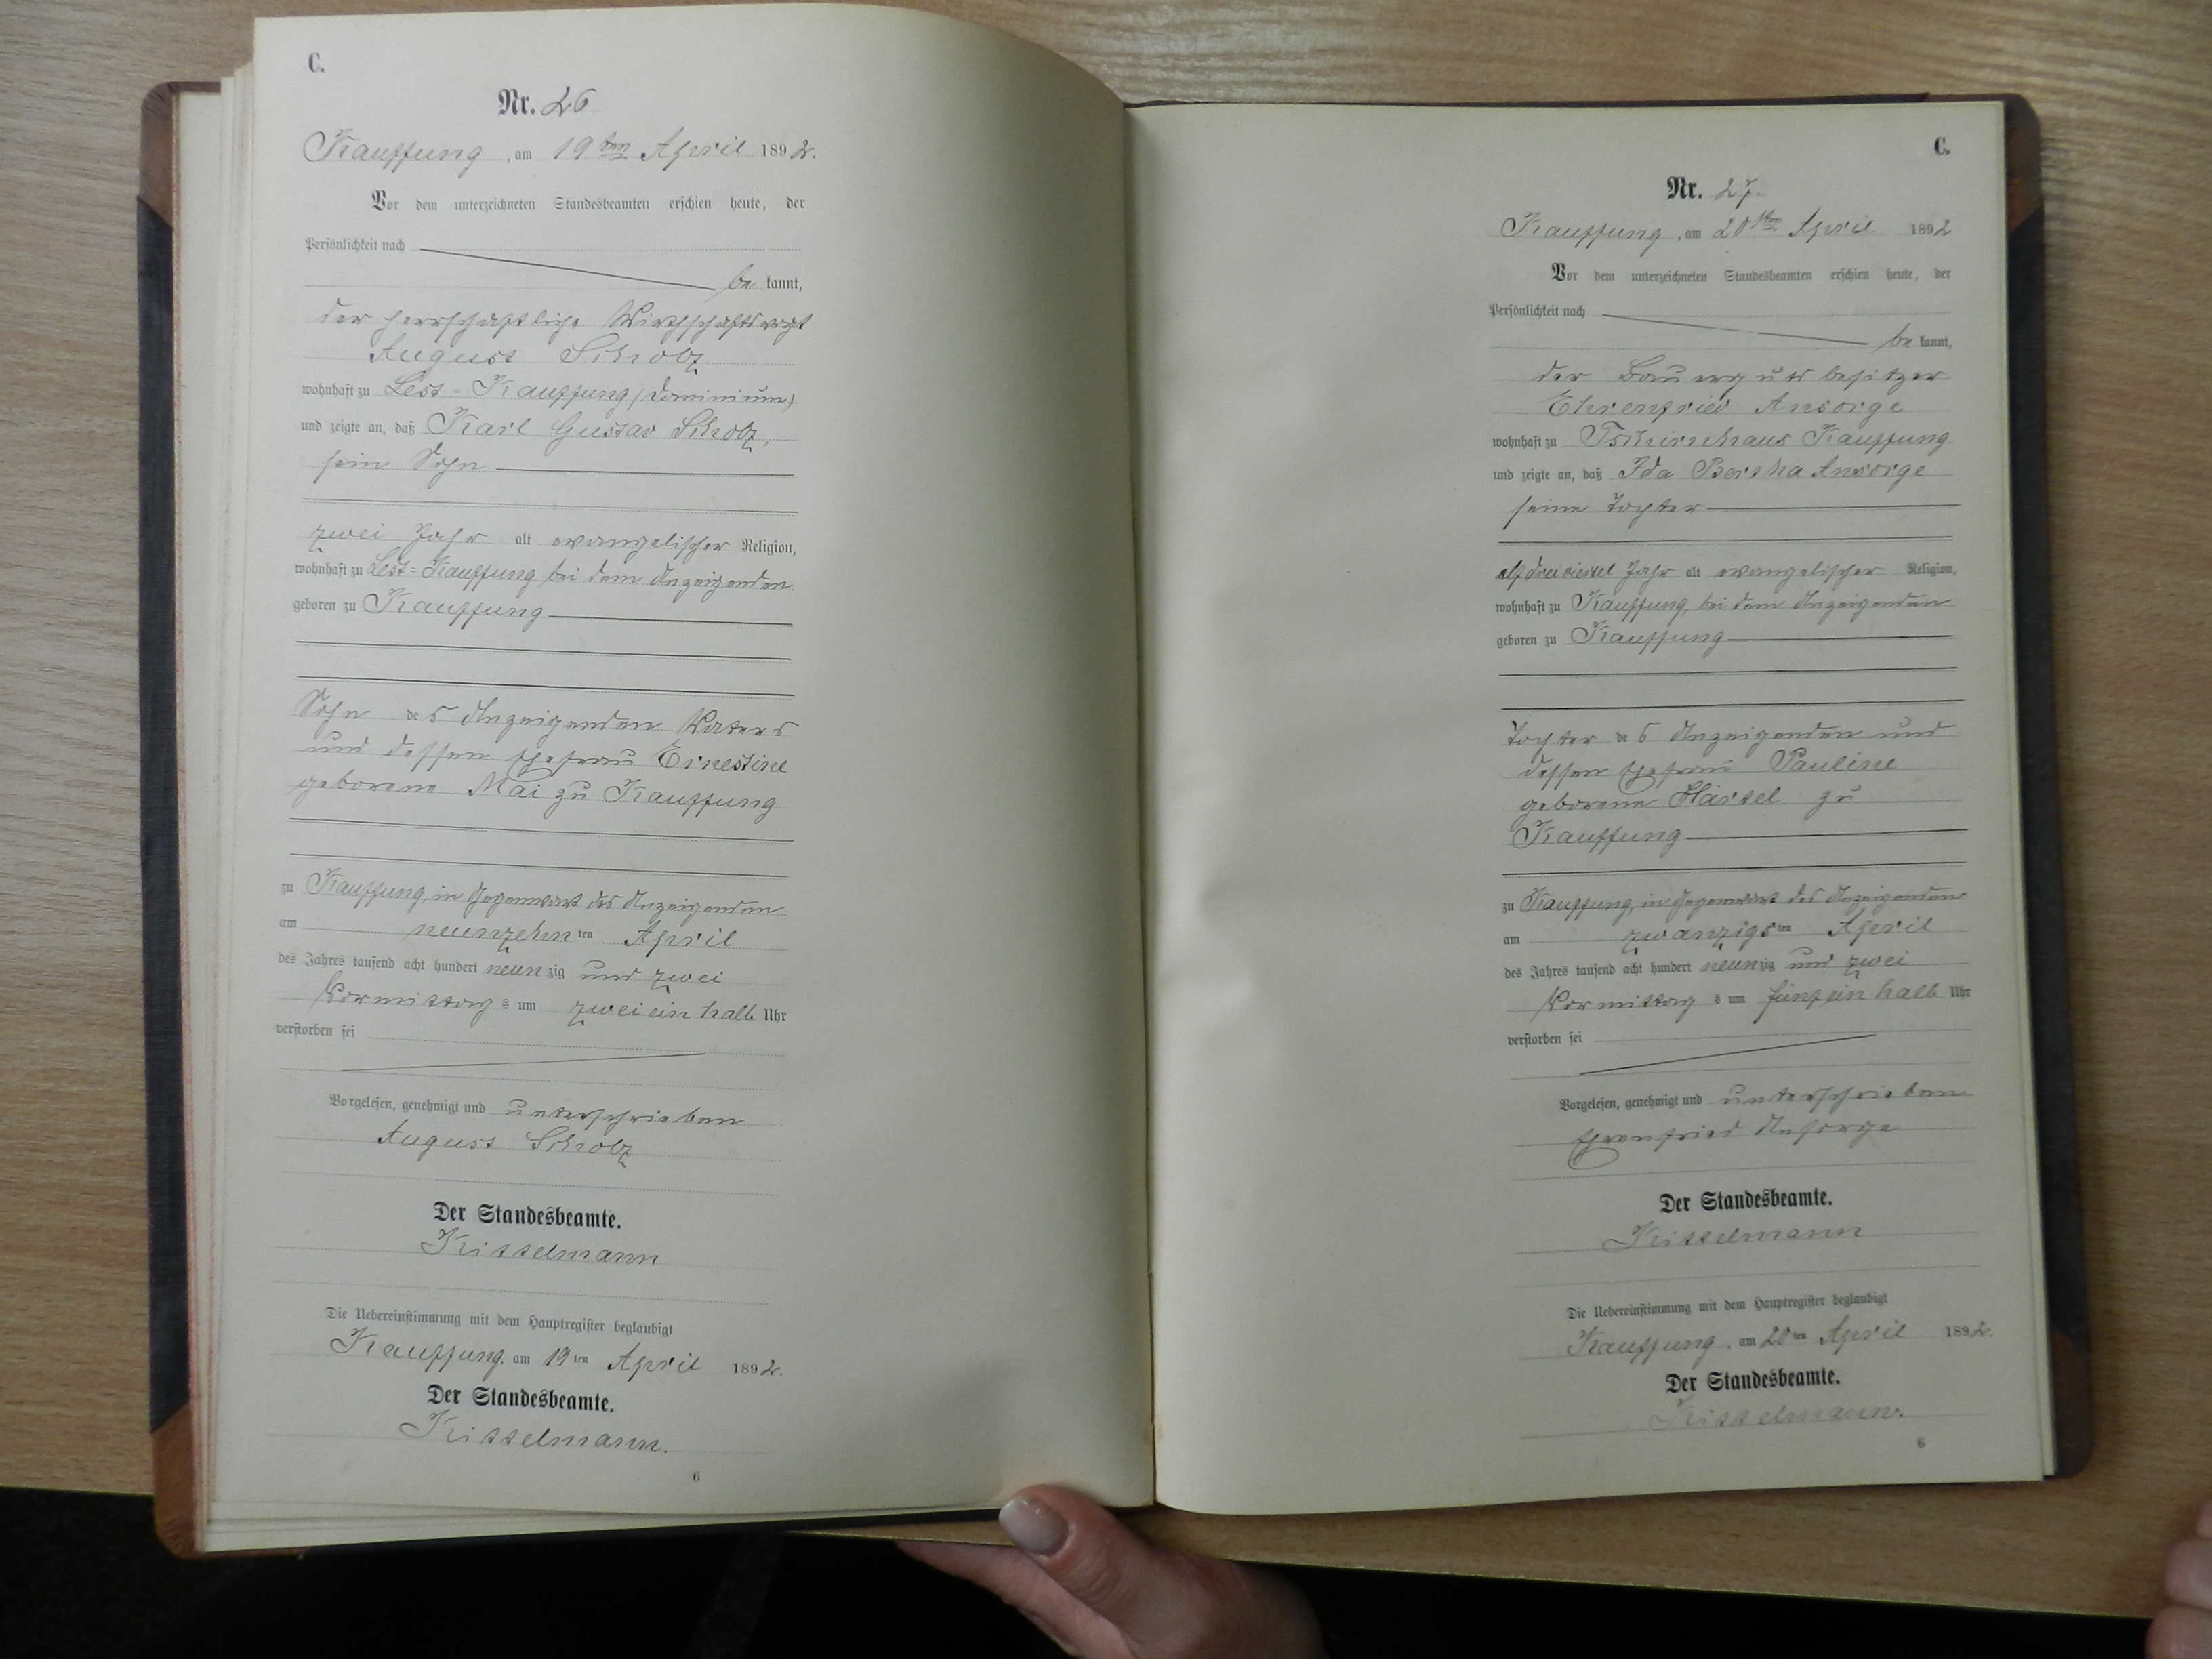 C.
Nr. 26
Kauffung, am 19ten April 1892.
Vor dem unterzeichneten Standesbeamten erschien heute, der
Persönlichkeit nach
be kannt,
der herrschaftliche Wirthschaftsvogt
August Scholz
wohnhaft zu Lest-Kauffung (Dominium)
und zeigte an, daß Karl Gustav Scholz,
sein Sohn
zwei Jahr alt evangelischer Religion,
wohnhaft zu Lest-Kauffung bei dem Anzeigenden
geboren zu Kauffung
Sohn des Anzeigenden Vaters
und dessen Ehefrau Ernestine
geborene Mai zu Kauffung
zu Kauffung, in Gegenwart des Anzeigenden
am neunzehnten April
des Jahres tausend acht hundert neunzig und zwei
Vormittags um zwei ein halb Uhr
verstorben sei
Vorgelesen, genehmigt und unterschrieben
August Scholz
Der Standesbeamte.
Kisselmann
Die Uebereinstimmung mit dem Hauptregister beglaubigt
Kauffung, am 19ten April 1892.
Der Standesbeamte.
Kisselmann.
6
C.
Nr. 27.
Kauffung, am 20ten April 1892
Vor dem unterzeichneten Standesbeamten erschien heute, der
Persönlichkeit nach
be kannt,
der Bauergutsbesitzer
Ehrenfried Ansorge
wohnhaft zu Tschirnhaus Kauffung
und zeigte an, daß Ida Bertha Ansorge
seine Tochter
elfdreiviertel Jahr alt evangelischer Religion,
wohnhaft zu Kauffung, bei dem Anzeigenden
geboren zu Kauffung
Tochter des Anzeigenden und
dessen Ehefrau Pauline
geborene Härtel zu
Kauffung
zu Kauffung, in Gegenwart des Anzeigenden
am zwanzigsten April
des Jahres tausend acht hundert neunzig und zwei
Vormittags um fünf ein halb Uhr
verstorben sei
Vorgelesen, genehmigt und unterschrieben
Ehrenfried Ansorge
Der Standesbeamte.
Kisselmann
Die Uebereinstimmung mit dem Hauptregister beglaubigt
Kauffung, am 20ten April 1892.
Der Standesbeamte.
Kisselmann.
6